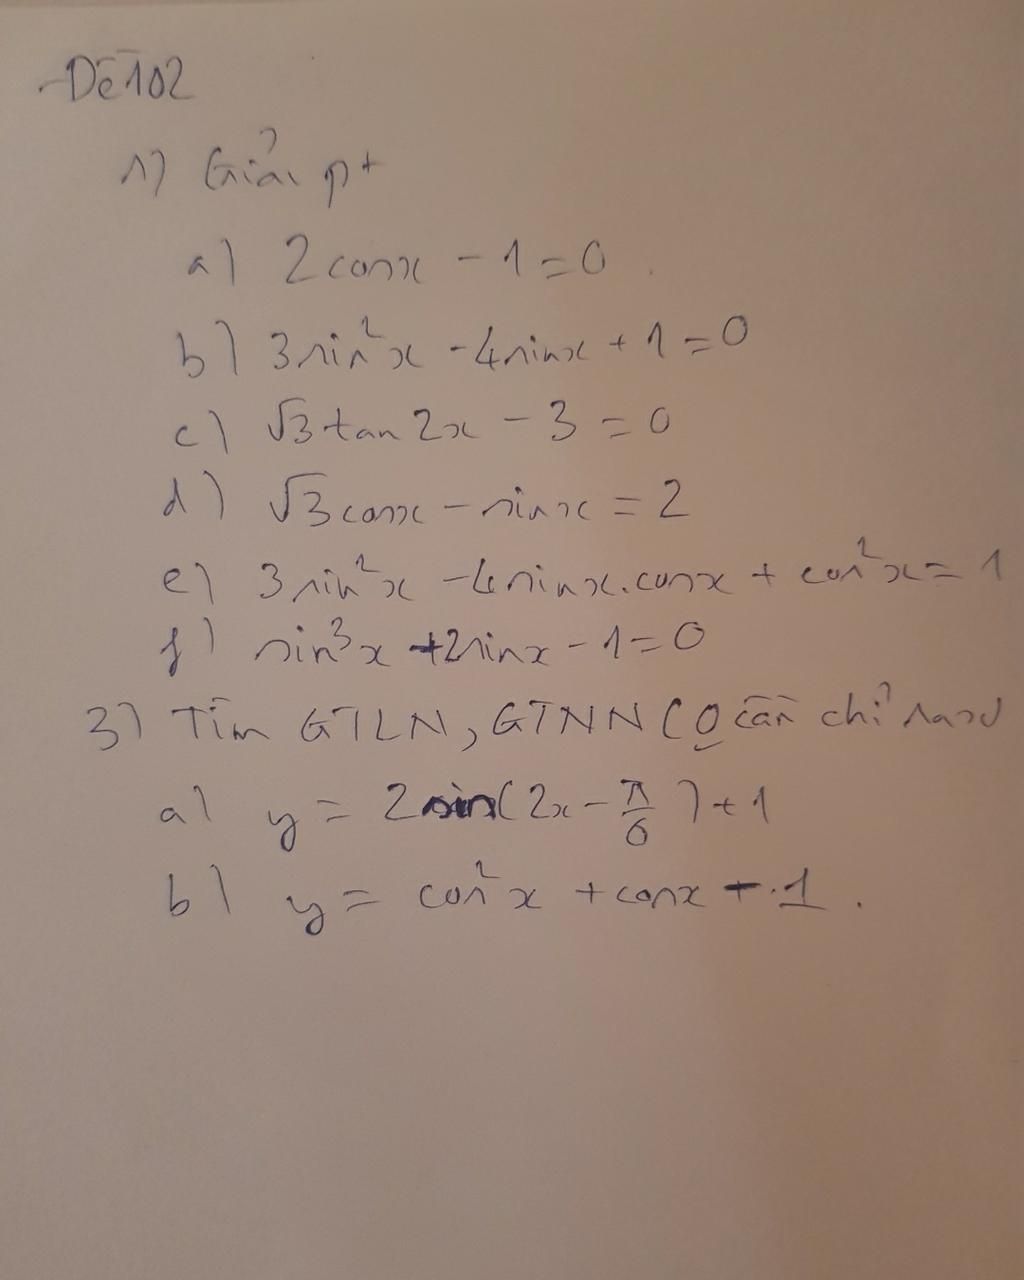 Đề 102
1) Giải pt
a) 2cosx - 1 = 0.
b) 3sin²x - 4sinx + 1 = 0
c) √3 tan 2x - 3 = 0
d) √3 cosx - sinx = 2
e) 3sin²x - 4sinx.cosx + cos²x = 1
f) sin³x + 2sinx - 1 = 0
3) Tìm GTLN, GTNN (0 cần chỉ ra
a) y = 2sin(2x - π/6) + 1
b) y = cos²x + cosx + 1.